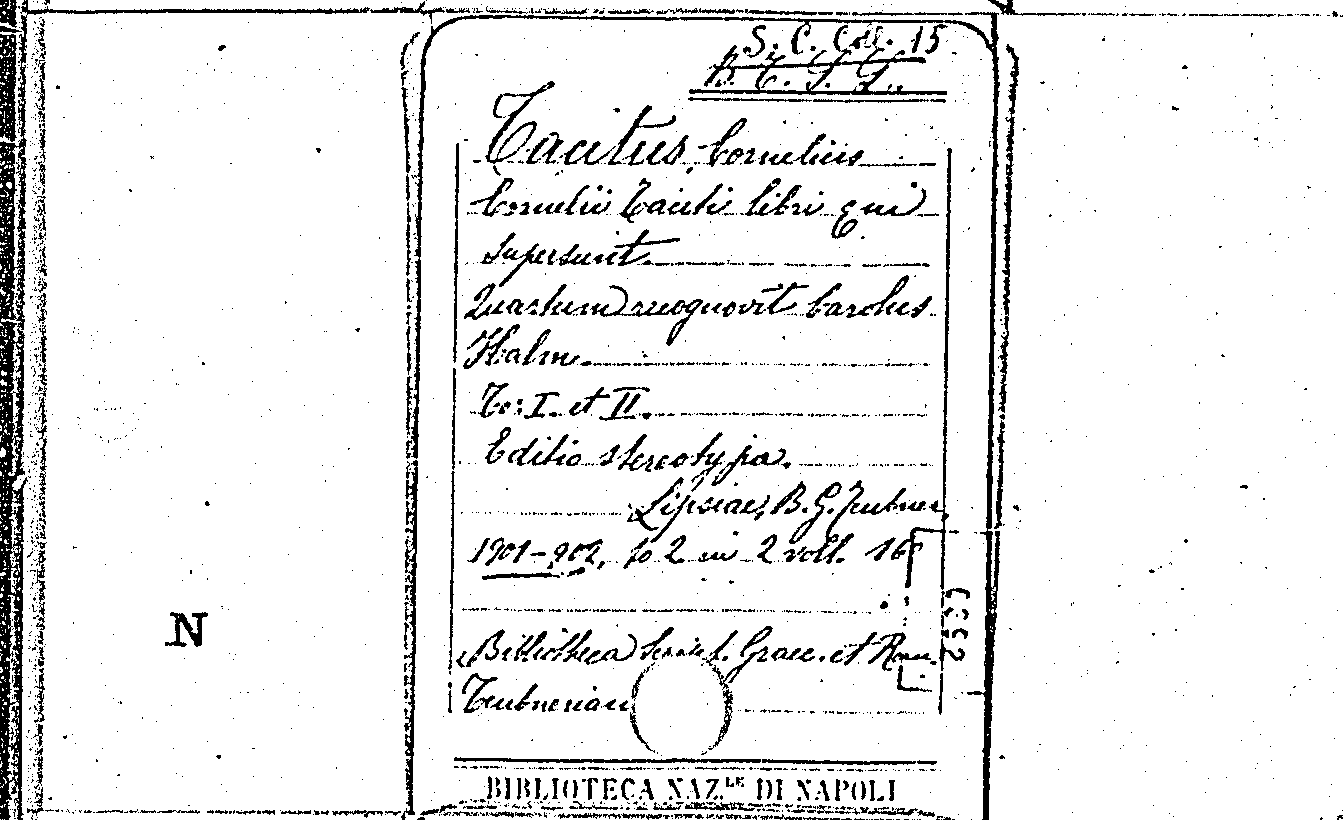 S. C. Coll. 15
B. T. S. L.
Tacitus, Cornelius
Cornelii Taciti libri qui
supersunt.
Quartum recognovit Carolus
Halm.
To: I. et II.
Editio stereotypa.
Lipsiae, B. G. Teubner,
1901-902, to 2 in 2 voll. 16°
N
Bibliotheca Script. Graec. et Rom.
Teubnerian
BIBLIOTECA NAZ.LE DI NAPOLI